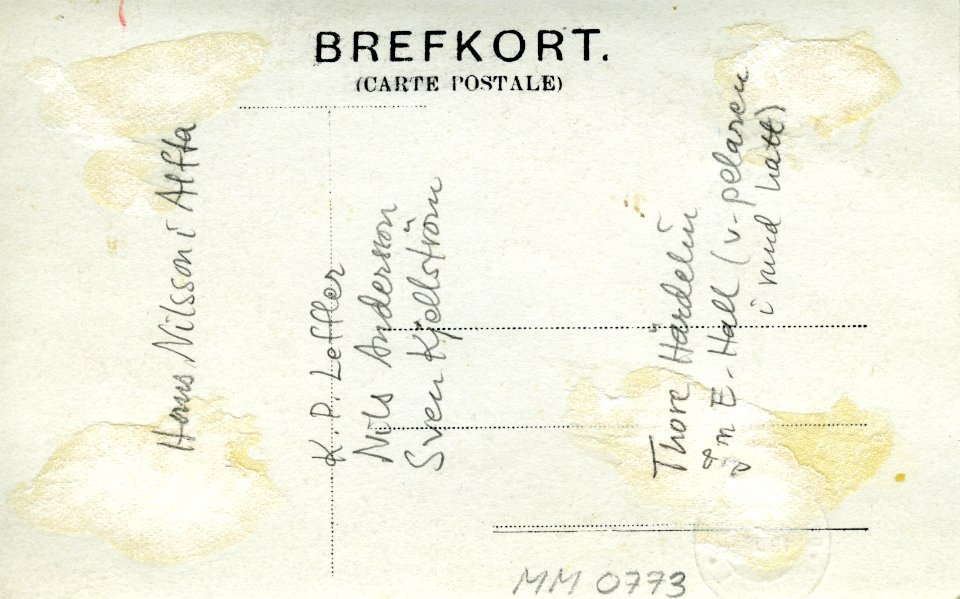 BREFKORT.
(CARTE POSTALE)
Hans Nilsson i Alfta
K. P. Leffler
Nils Andersson
Sven Kjellström
Thore Härdelin
E. Hall (v-pelaren
i rund hatt)
MM 0773